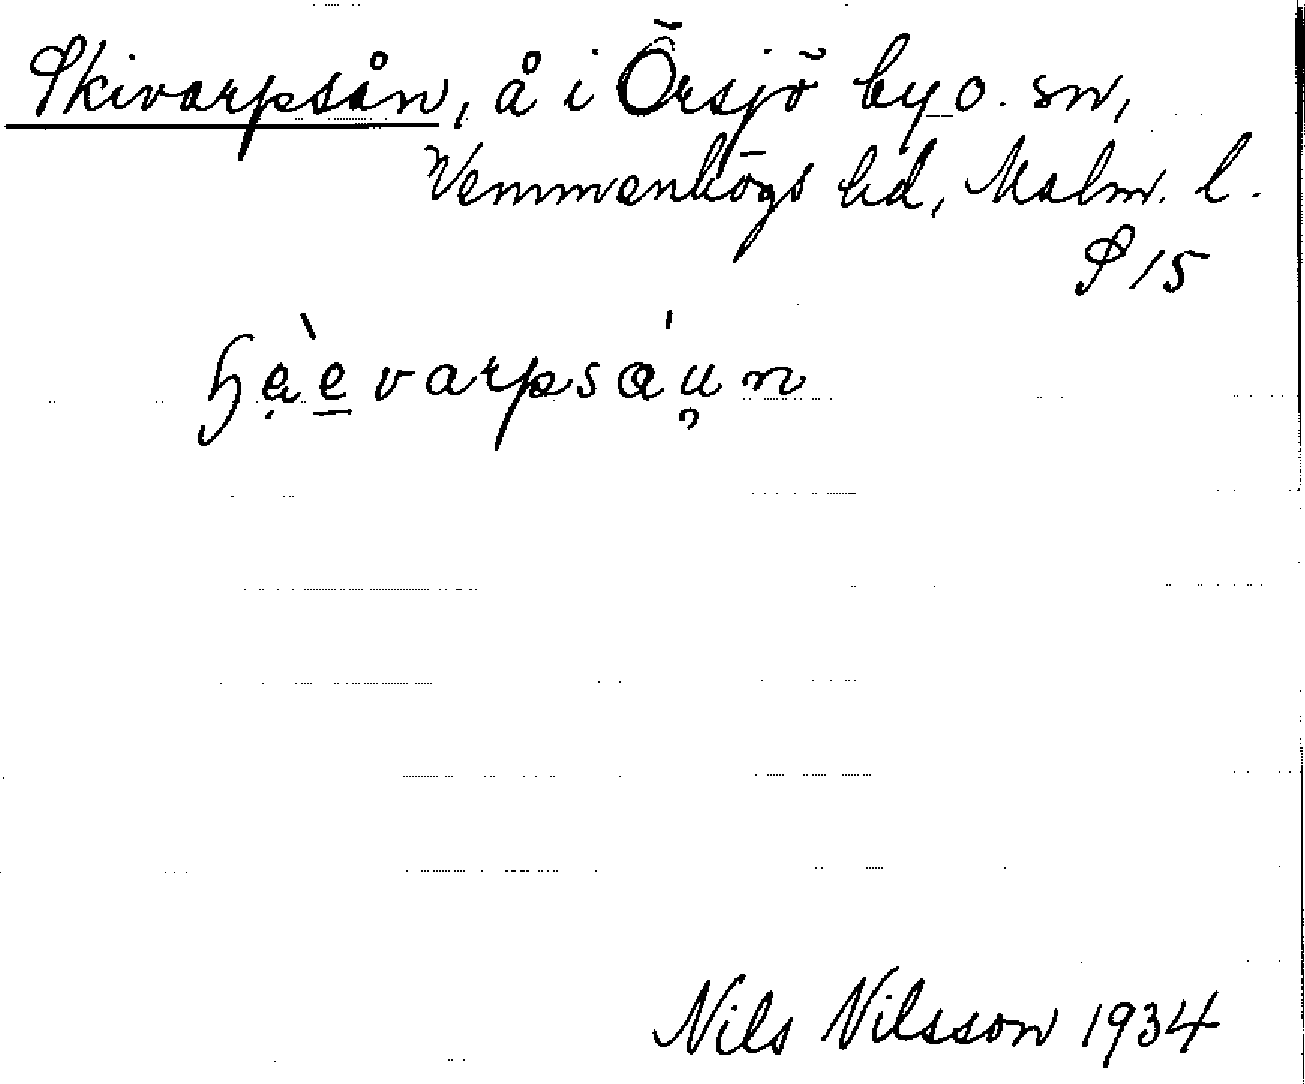 Skivarpsån, å i Örsjö by o. sn,
Vemmenhögs hd, Malm. l.
S 15
ɧẹ̀e̲varpsáu̡n
Nils Nilsson 1934